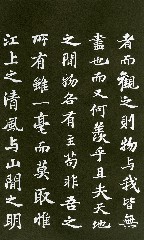 者而觀之則物與我皆無
盡也而又何羨乎且夫天地
之間物各有主苟非吾之
所有雖一毫而莫取惟
江上之清風與山間之明